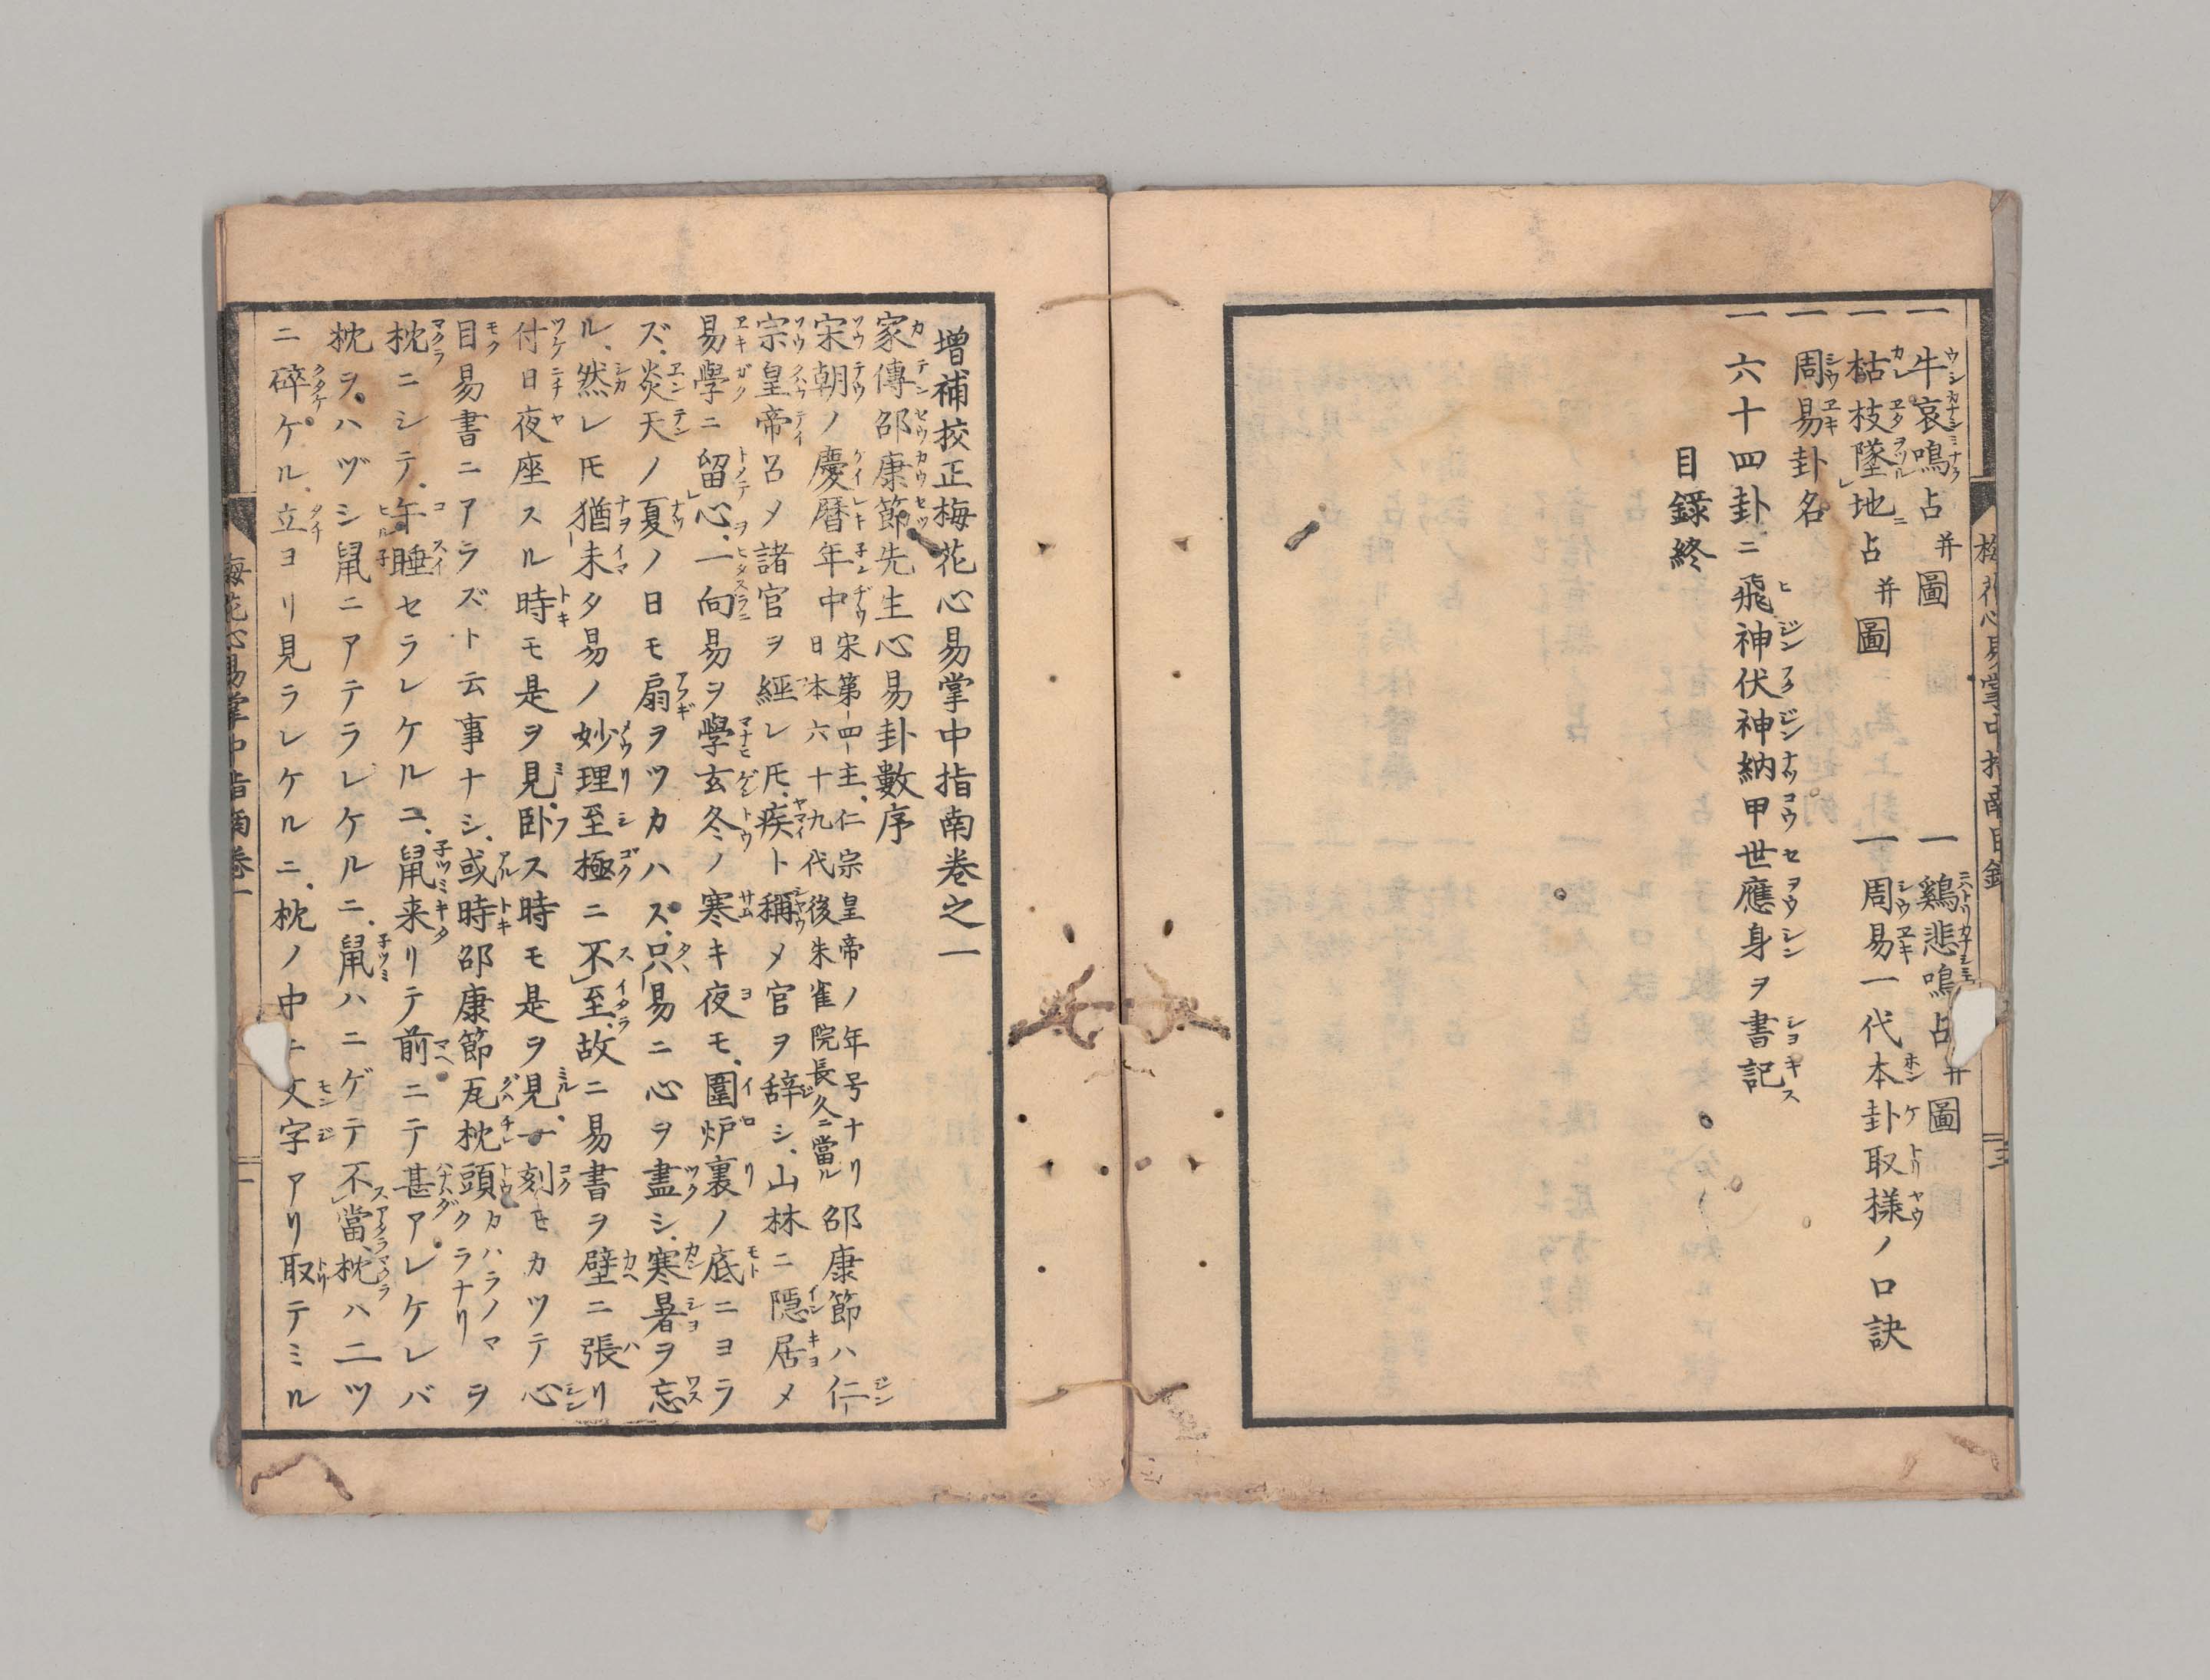 一 牛哀鳴占并圖 一 鷄悲鳴占并圖
一 枯枝墜地占并圖 一 周易一代本卦取様ノ口訣
一 周易卦名
一 六十四卦ニ飛神伏神納甲世應身ヲ書記
目録終
増補挍正梅花心易掌中指南巻之一
家傳邵康節先生心易卦數序
宋朝ノ慶暦年中宋第四主仁宗皇帝ノ年号ナリ日本六十九代後朱雀院長久ニ當ル邵康節ハ仁
宗皇帝召メ諸官ヲ經レ𪜈、疾ト稱メ官ヲ辞シ、山林ニ隠居メ
易學ニ留心、一向易ヲ學玄冬ノ寒キ夜モ、圍炉裏ノ底ニヨラ
ズ、炎天ノ夏ノ日モ扇ヲツカハス、只易ニ心ヲ盡シ、寒暑ヲ忘
ル、然レ𪜈猶未タ易ノ妙理至極ニ不至、故ニ易書ヲ壁ニ張リ
付日夜座スル時モ是ヲ見、卧ス時モ是ヲ見、一刻モカツテ心
目易書ニアラズト云事ナシ、或時邵康節瓦枕頭カハラノマクラナリヲ
枕ニシテ、午睡セラレケルニ、鼠来リテ前ニテ甚アレケレバ
枕ヲ、ハヅシ鼠ニアテラレケルニ、鼠ハニゲテ不當、枕ハ二ツ
ニ碎ケル、立ヨリ見ラレケルニ、枕ノ中ニ文字アリ取テミル
梅花心易掌中指南巻一